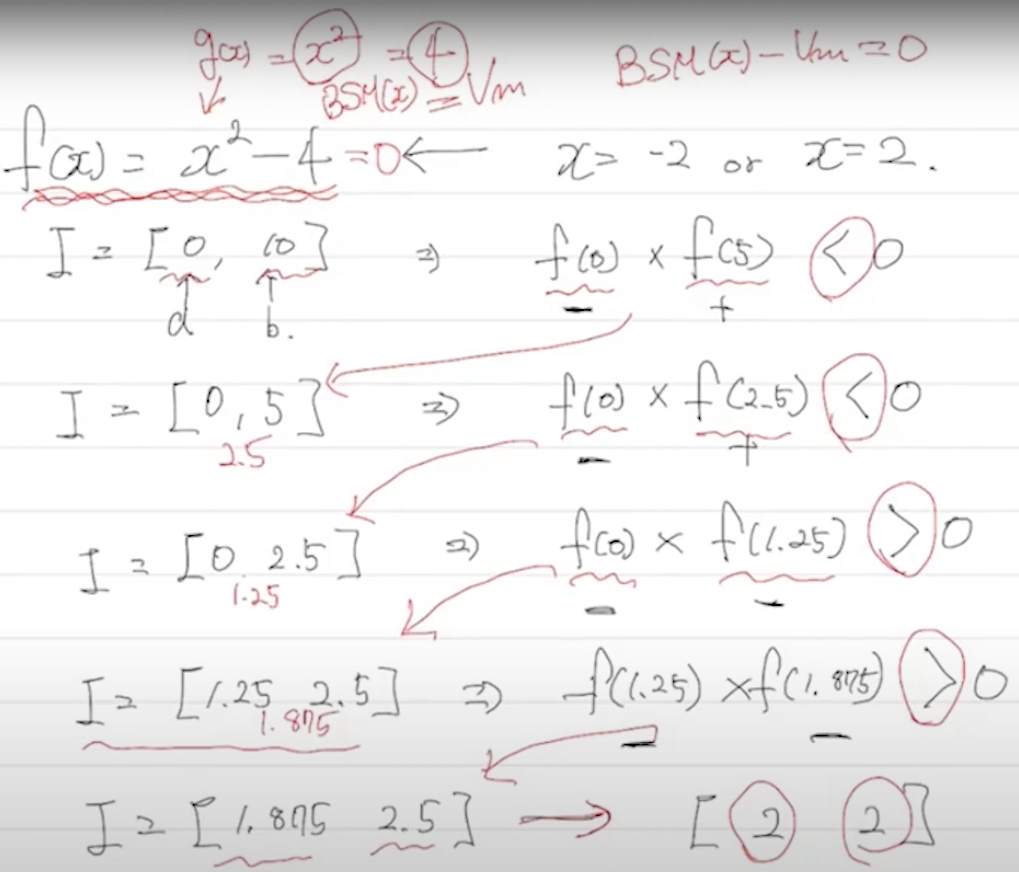 g(x) = x² = 4 BSM(x) - Vm = 0
BSM(x) = Vm
f(x) = x² - 4 = 0 ← x = -2 or x = 2.
I = [0, 10] ⇒ f(0) × f(5) < 0
a b. - +
I = [0, 5] ⇒ f(0) × f(2.5) < 0
2.5 - +
I = [0 2.5] ⇒ f(0) × f(1.25) > 0
1.25 - -
I = [1.25 2.5] ⇒ f(1.25) × f(1.875) > 0
1.875 - -
I = [1.875 2.5] → [2 2]